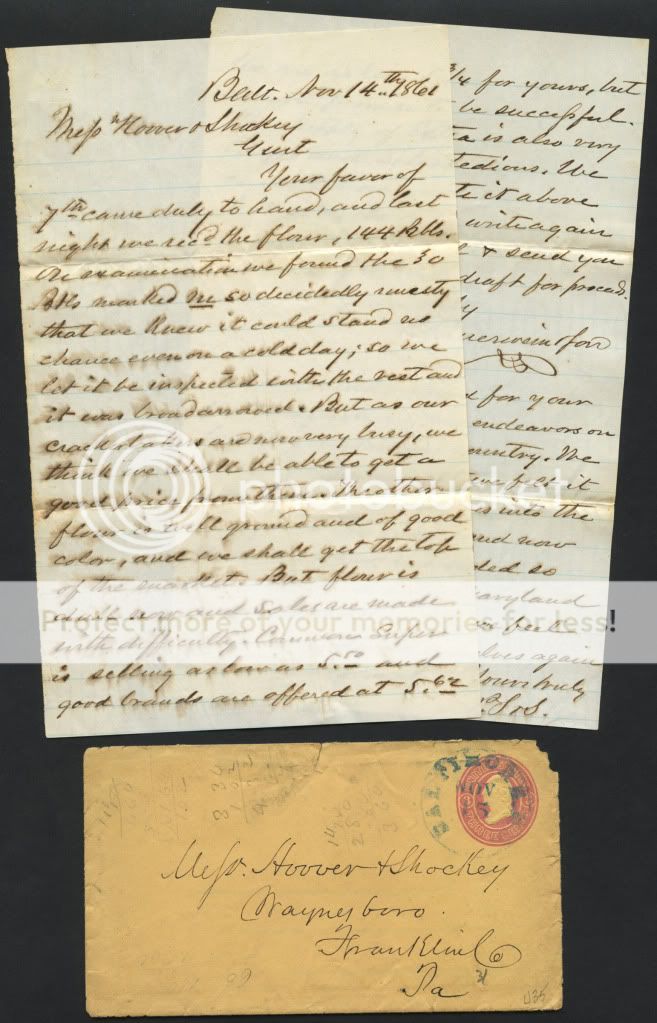 Balt. Nov 14th 1861
Messrs Hoover & Shockey
Gent
Your favor of
7th came duly to hand, and last
night we recd the flour, 144 Bbls.
On examination we found the 30
Bbls marked m so decidedly musty
that we knew it could stand no
chance even on a cold day; so we
let it be inspected with the rest and
it was broad arrowed. But as our
are now very busy, we
think we shall be able to get a
good price from them. The other
flour is well ground and of good
color, and we shall get the top
of the market. But flour is
dull now and sales are made
with difficulty. Common Super
is selling as low as 5.50 and
good brands are offered at 5.62
3/4 for yours, but
be successful.
is also very
tedious. We
it above
write again
& send you
draft for proceeds.
for
for your
endeavors on
country. We
we felt it
into the
and now
ded so
Maryland
we feel
again
Yours truly
photobucket
Protect more of your memories for less!
BALTIMORE
NOV
Messrs. Hoover & Shockey
Waynesboro.
Franklin Co
Pa
U35